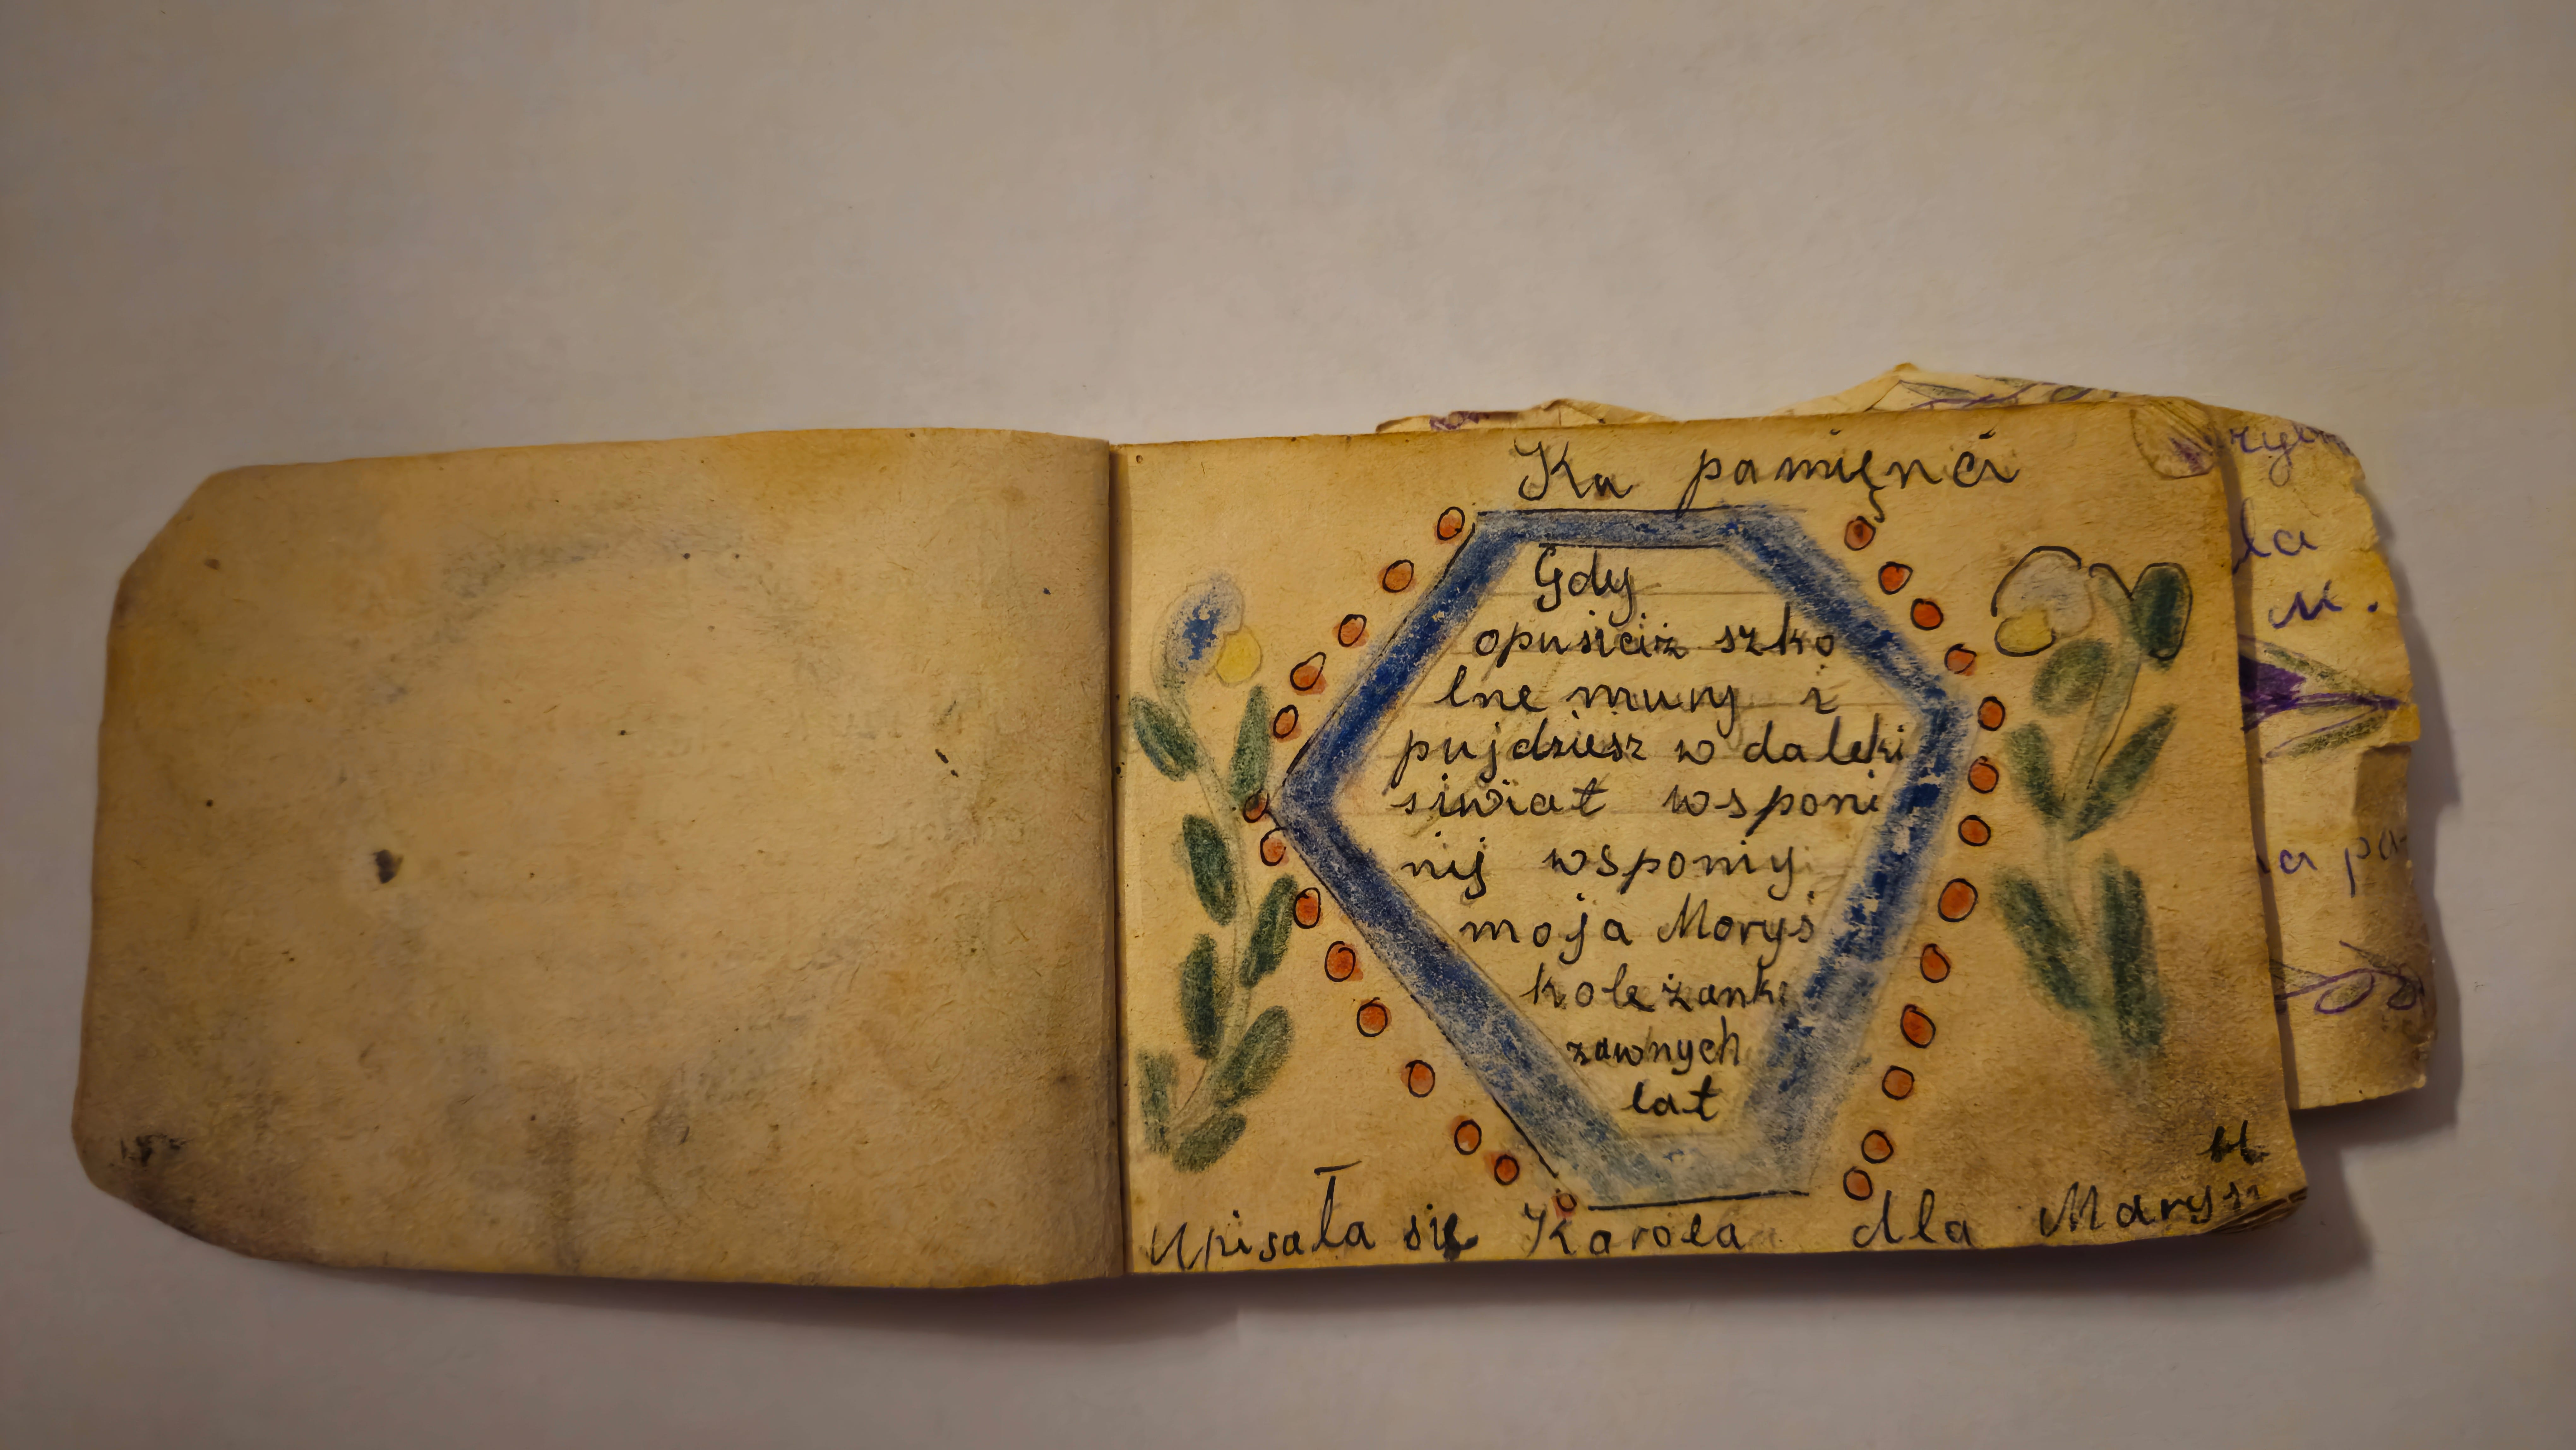 Ka pamięnci
Gdy
opusiciż szko
lne mury i
pujdziesz w daleki
siwiat wsponi
nij wspomij
moja Moryś
koleżanki
zawnych
lat
Upisała się Karola dla Marysi
ła
M.
a pa-